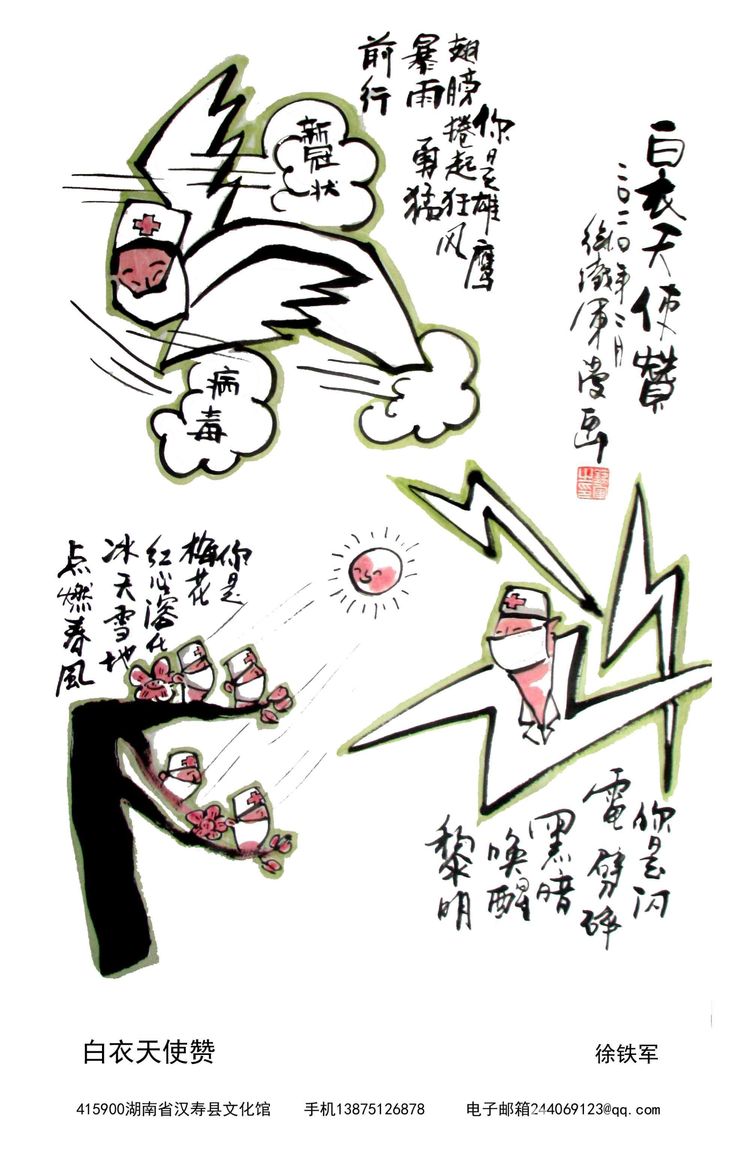 白衣天使赞
二〇二〇年二月
徐铁军漫画
你是雄鹰
翅膀捲起狂风
暴雨 勇猛
前行
新冠状
病毒
你是
梅花
红心溶化
冰天雪地
点燃春風
你是闪
電劈碎
黑暗
唤醒
黎明
白衣天使赞
徐铁军
415900湖南省汉寿县文化馆 手机13875126878 电子邮箱244069123@qq.com